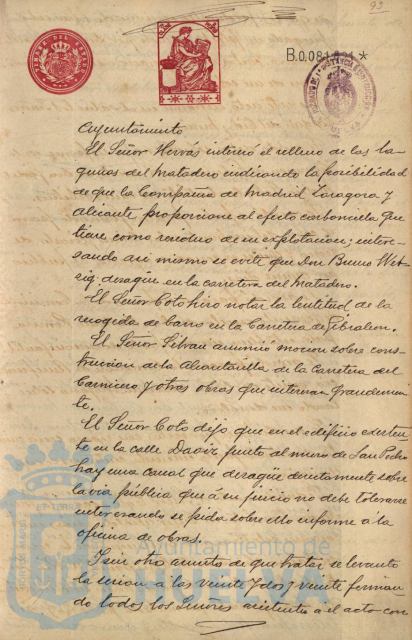 93
TIMBRE DEL ESTADO
B.0.081.
Ayuntamiento
El Señor Hervás interesó el relleno de las la-
gunas del Matadero indicando la posibilidad
de que la Compañia de Madrid Zaragoza y
Alicante proporcione al efecto carbonilla que
tiene como residuo de su explotacion; intere-
sando asi mismo se evite que Don Bruno Wet-
zig desagüe en la carretera del Matadero.
El Señor Coto hizo notar la lentitud de la
recogida de barros en la Carretera de Gibraleon.
El Señor Silvan anunció mocion sobre cons-
truccion de la Alcantarilla de la Carretera del
Carnicero y otras obras que interesan grandemen-
te.
El Señor Coto dijo que en el edificio existen-
te en la calle Daoiz junto al muro de San Pedro
hay una canal que desagüe directamente sobre
la via pública que á su juicio no debe tolerarse
interesando se pida sobre ello informe a la
oficina de obras.
I sin otro asunto de que tratar se levantó
la sesion a las veinte y dos y veinte firman-
do todos los Señores asistentes á el acto con-
Ayuntamiento de
HUELVA